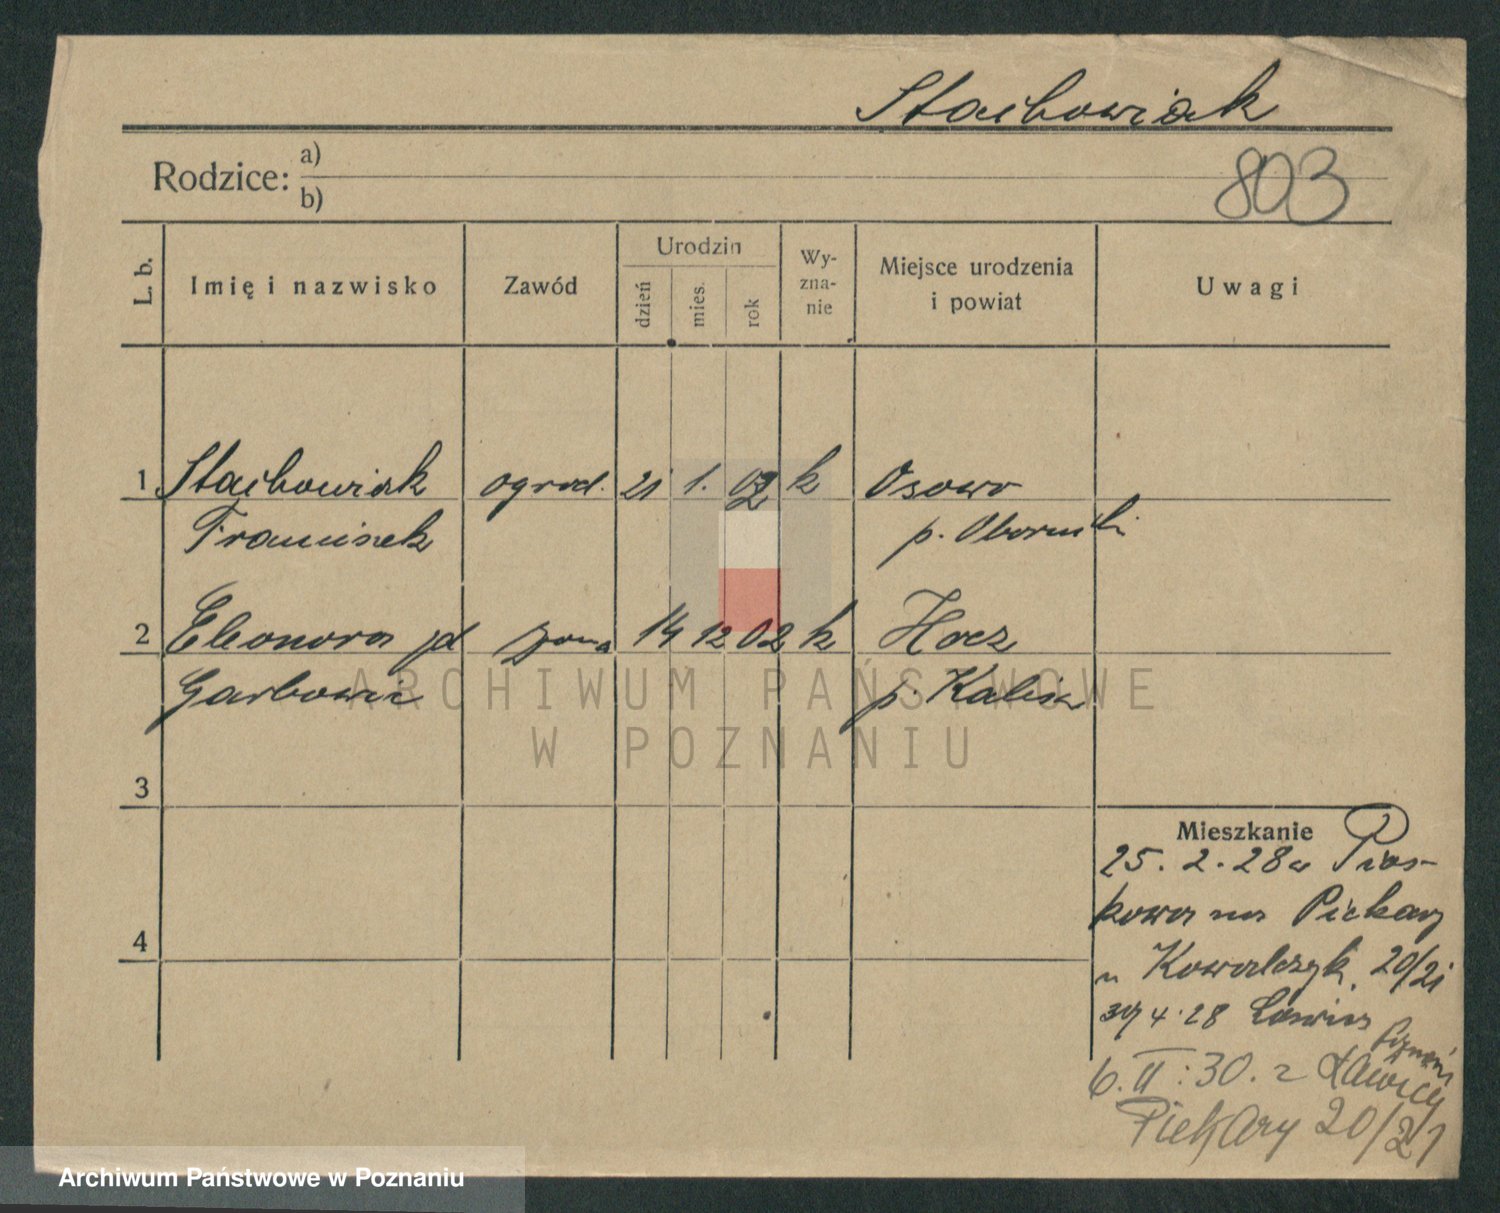 Stachowiak
Rodzice: a)
b)
803
L. b.
Imię i nazwisko
Zawód
Urodzin
dzień
mies.
rok
Wy-
zna-
nie
Miejsce urodzenia
i powiat
Uwagi
1 Stachowiak ogrod. 21 1. 02 k Osowo
Franciszek p. Obornicki
2 Eleonora zd żona 14 12 02 k Hocz
Garbowic p. Kalisz
3
4
Mieszkanie
25. 2. 28 Pias-
kowa na Piekary
u Kowalczyk. 20/21
30/4.28 Ławica
Poznań
6. II. 30. z Ławicy
Piekary 20/21
ARCHIWUM PAŃSTWOWE
W POZNANIU
Archiwum Państwowe w Poznaniu